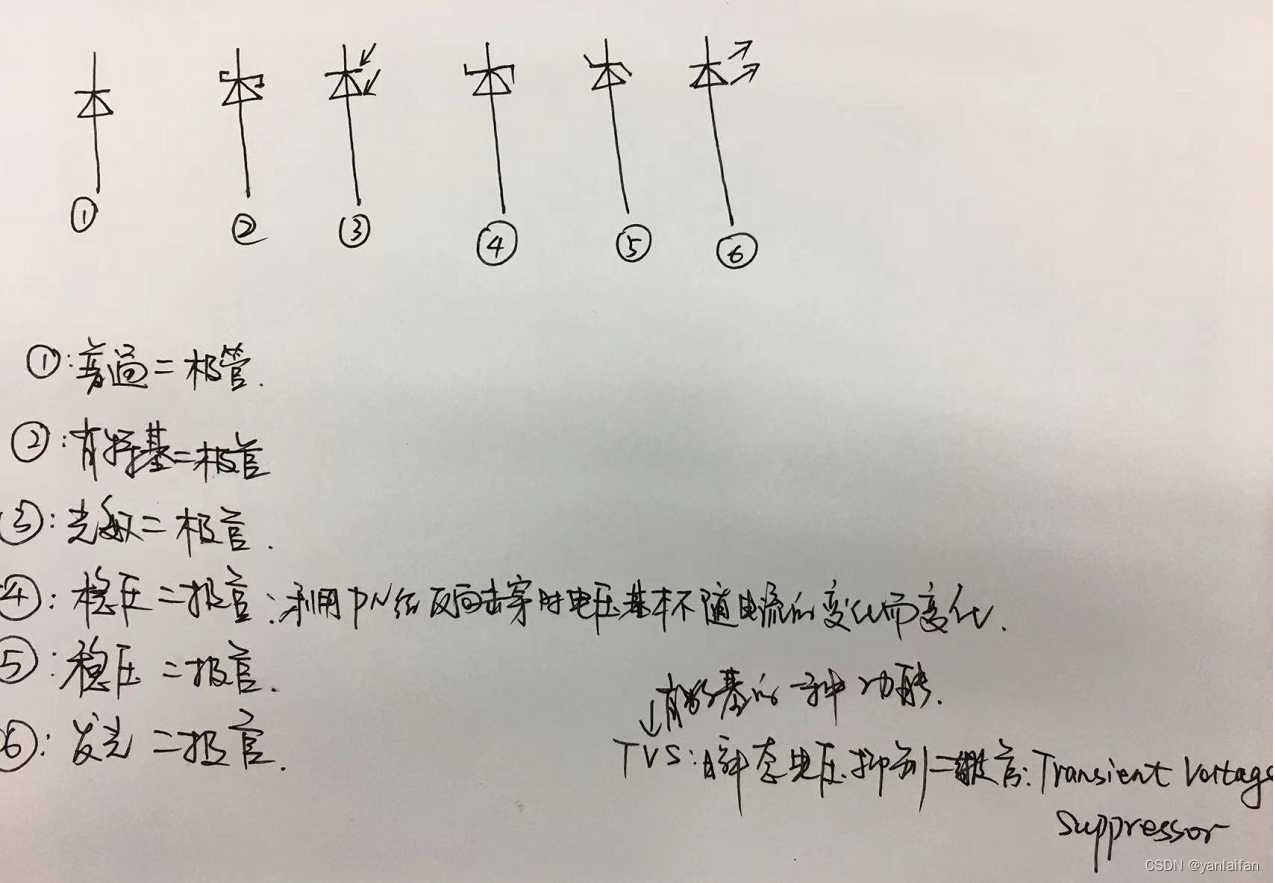 ① ② ③ ④ ⑤ ⑥
①:普通二极管.
②:肖特基二极管
③:光敏二极管.
④:稳压二极管:利用PN结反向击穿时电压基本不随电流的变化而变化.
⑤:稳压二极管.
肖特基的一种功能.
⑥:发光二极管.
TVS:瞬态电压抑制二极管:Transient Voltage
Suppressor
CSDN @yanlaifan